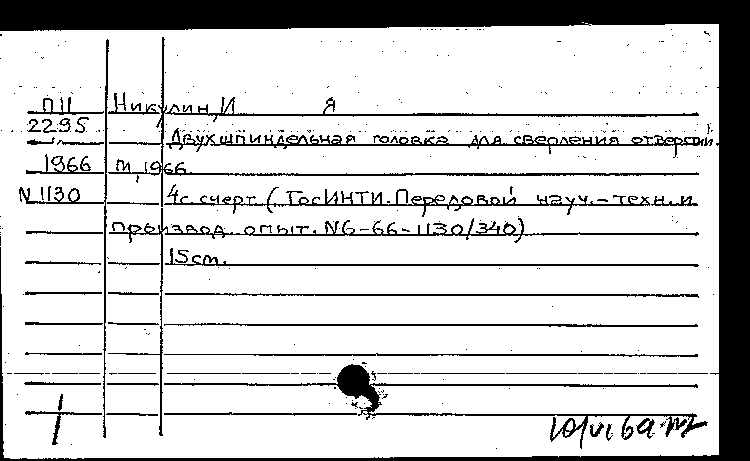 П11 Никулин, И Я
2295 Двухшпиндельная головка для сверления отверстий.
1966 М, 1966
N 1130 4с. счерт. (ГосИНТИ. Передовой науч.-техн. и
производ. опыт. N6-66-1130/340)
15см.
10/VI 69